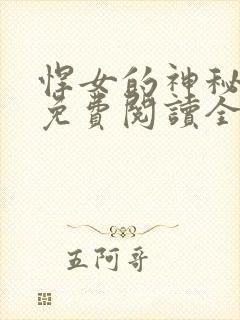 悍女的神秘
免費閱讀全
五阿哥